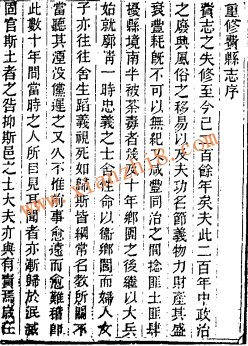 重修費縣志序
費志之失修至今已二百餘年矣夫此二百年中政治
之廢興風俗之移易以及夫功名節義物力財產其盛
衰豐耗既不可以無紀而咸豐同治之間捻匪土匪肆
擾縣境南半被荼毒者幾及十年鄉團之後繼以大兵
始就廓清一時忠義之士捨性命以衞鄉閭而婦人女
子亦往往舍生蹈義視死如歸斯皆綱常名教所關不
當聽其湮没儻遲之又久不惟前事愈遠而愈難稽卽
此數十年間當時之人所目見耳聞者亦漸歸於泯滅
固官斯土者之咎抑斯邑之士大夫亦與有責焉歲在
www.xianzhi8.com